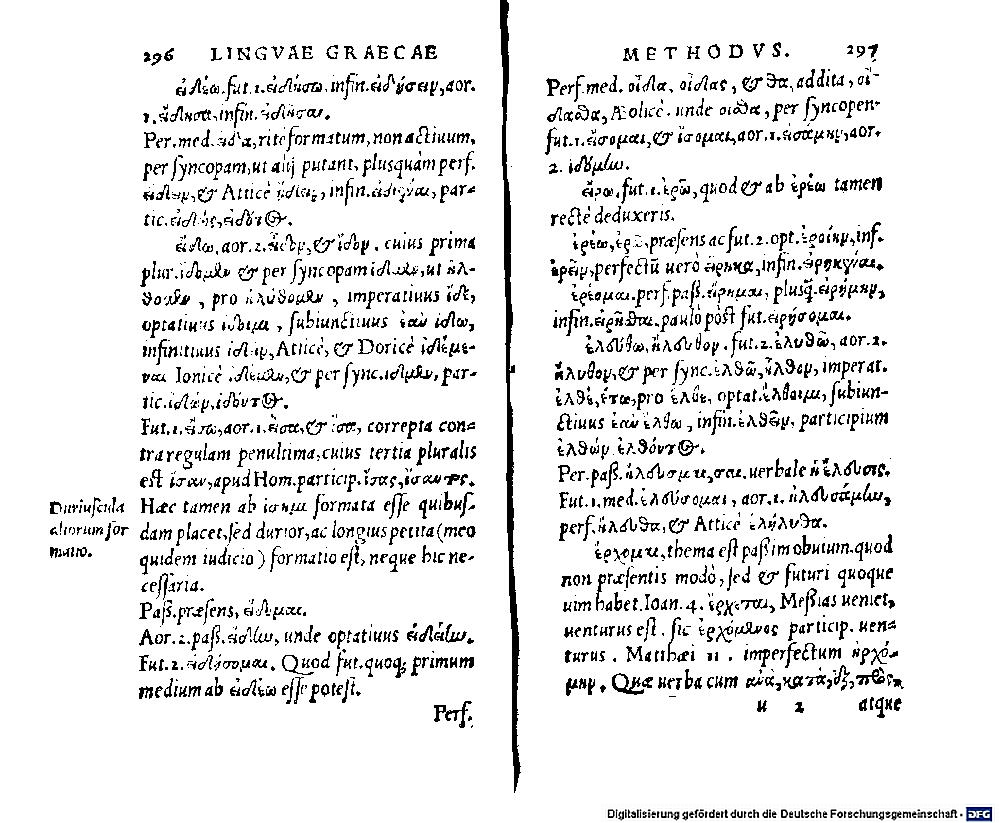 296 LINGVAE GRAECAE
εἰδέω. fut. 1. εἰδήσω. infin. εἰδήσειν, aor.
1. εἴδησα, infin. εἰδῆσαι.
Per. med. εἶδα, rite formatum, non actiuum,
per syncopam, ut alij putant, plusquàm perf.
εἰδειν, & Atticè ᾔδειν, infin. εἰδέναι, par-
tic. εἰδὼς, εἰδότος.
εἴδω, aor. 2. εἶδον, & ἴδον. cuius prima
plur. ἴδομεν & per syncopam ἴδμεν, ut ἤλ-
θομεν, pro ἠλύθομεν, imperatiuus ἴδε,
optatiuus ἴδοιμι, subiunctiuus ἐὰν ἴδω,
infinitiuus ἰδεῖν, Atticè, & Doricè ἰδέμε-
ναι Ionicè ἰδέμεν, & per sync. ἴδμεν, par-
tic. ἰδὼν, ἰδόντος.
Fut. 1. εἴσω, aor. 1. εἶσα, & ἶσα, correpta con-
tra regulam penultima, cuius tertia pluralis
est ἴσαν, apud Hom. particip. ἴσας, ἴσαντος.
Duriuscula
aliorum for
matio.
Hæc tamen ab ἴσημι formata esse quibus-
dam placet, sed durior, ac longius petita (meo
quidem iudicio) formatio est, neque hic ne-
cessaria.
Pass. præsens, εἴδομαι.
Aor. 2. pass. εἴδην, unde optatiuus εἰδείην.
Fut. 2. εἰδήσομαι. Quod fut. quoq; primum
medium ab εἰδέω esse potest.
Perf.
METHODVS. 297
Perf. med. οἶδα, οἶδας, & θα, addita, οἴ-
δασθα, Æolicè. unde οἶσθα, per syncopen-
fut. 1. εἴσομαι, & ἴσομαι, aor. 1. εἰσάμην, aor.
2. ἰδόμην.
εἴρω. fut. 1. ἐρῶ, quod & ab ἐρέω tamen
rectè deduxeris.
ἐρέω, ἐρῶ, præsens ac fut. 2. opt. ἐροίην, inf.
ἐρεῖν, perfectũ uerò εἴρηκα, infin. εἰρηκέναι.
ἐρέομαι. perf. pass. εἴρημαι, plusq̃. εἰρήμην,
infin. εἰρῆσθαι. paulò pòst fut. εἰρήσομαι.
ἐλεύθω, ἤλευθον. fut. 2. ἐλυθῶ, aor. 2.
ἤλυθον, & per sync. ἐλθῶ, ἦλθον, imperat.
ἐλθὲ, έτω, pro ἔλθε, optat. ἔλθοιμι, subiun-
ctiuus ἐὰν ἔλθω, infin. ἐλθεῖν, participium
ἐλθὼν ἐλθόντος.
Per. pass. ἤλευσμαι, σαι. uerbale ἡ ἔλευσις.
Fut. 1. med. ἐλεύσομαι, aor. 1. ἠλευσάμην,
perf. ἤλευθα, & Atticè ἐλήλυθα.
ἔρχομαι, thema est passim obuium. quod
non præsentis modò, sed & futuri quoque
uim habet. Ioan. 4. ἔρχεται, Messias ueniet,
uenturus est. sic ἐρχόμενος particip. uen-
turus. Matthæi 11. imperfectum ἠρχό-
μην. Quæ uerba cum ἀνὰ, κατὰ, ἐξ, πρὸς,
u 2 atque
Digitalisierung gefördert durch die Deutsche Forschungsgemeinschaft - DFG